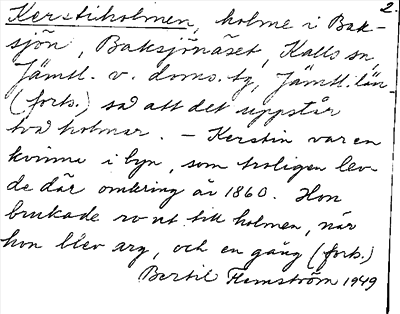 2.
Kerstiholmen, holme i Bak-
sjön, Baksjönäset, Kalls sn,
Jämtl. v. doms. tg, Jämtl. län
(forts.) så att det uppstår
två holmar. – Kerstin var en
kvinna i byn, som troligen lev-
de där omkring år 1860. Hon
brukade ro ut till holmen, när
hon blev arg, och en gång (forts.)
Bertil Flemström 1949